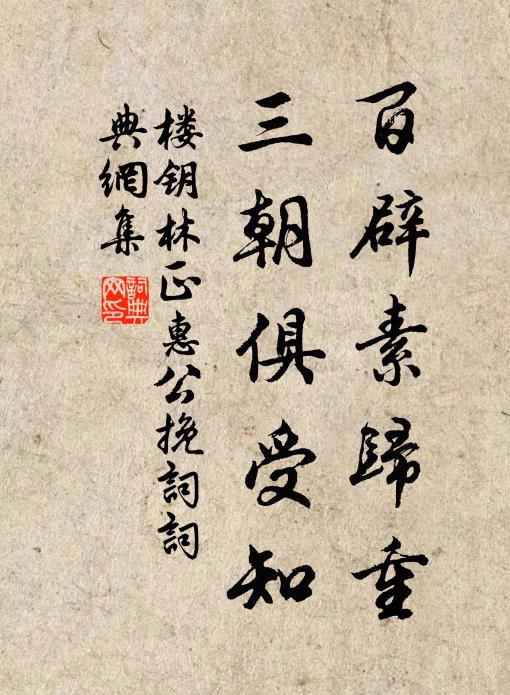 百辟素歸重
三朝俱受知
楼钥林正惠公挽詞詞
典網集
詞典
网印